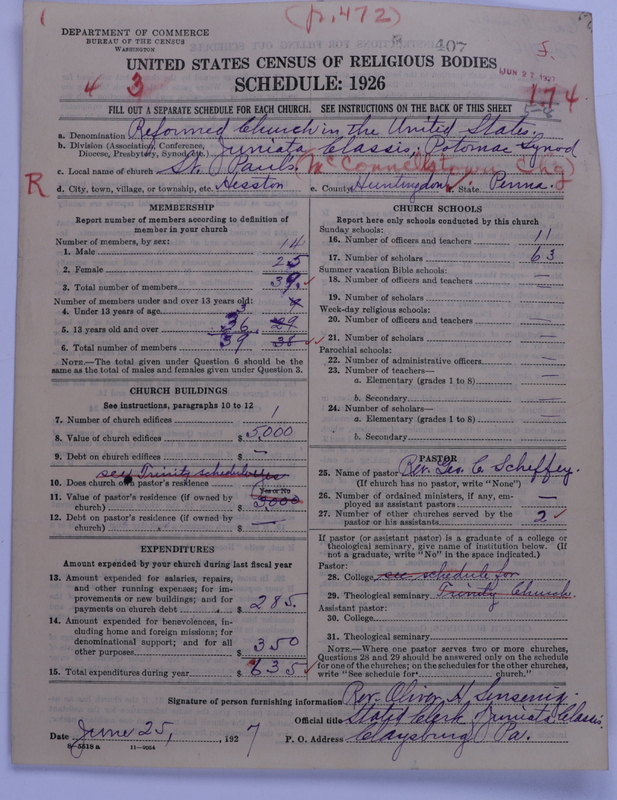 (p. 472)
DEPARTMENT OF COMMERCE
BUREAU OF THE CENSUS
WASHINGTON
407
UNITED STATES CENSUS OF RELIGIOUS BODIES
JUN 27 1927
SCHEDULE: 1926
4 3
174
5-8
FILL OUT A SEPARATE SCHEDULE FOR EACH CHURCH. SEE INSTRUCTIONS ON THE BACK OF THIS SHEET
a. Denomination Reformed Church in the United States,
b. Division (Association, Conference, Diocese, Presbytery, Synod, etc.) Juniata Classis; Potomac Synod
c. Local name of church St. Pauls. McConnellstown Chg
R
d. City, town, village, or township, etc. Hesston e. County Huntingdon f. State Penna.
MEMBERSHIP
Report number of members according to definition of
member in your church
Number of members, by sex:
1. Male 14
2. Female 25
3. Total number of members 39
Number of members under and over 13 years old:
4. Under 13 years of age 3
5. 13 years old and over 36 29
6. Total number of members 39 38
NOTE.—The total given under Question 6 should be the
same as the total of males and females given under Question 3.
CHURCH BUILDINGS
See instructions, paragraphs 10 to 12
7. Number of church edifices 1
8. Value of church edifices $ 5,000
9. Debt on church edifices $ —
see Trinity schedule
10. Does church own pastor's residence yes
(Yes or No)
11. Value of pastor's residence (if owned by
church) $ 5,000
12. Debt on pastor's residence (if owned by
church) $ —
EXPENDITURES
Amount expended by your church during last fiscal year
13. Amount expended for salaries, repairs,
and other running expenses; for im-
provements or new buildings; and for
payments on church debt $ 285.
14. Amount expended for benevolences, in-
cluding home and foreign missions; for
denominational support; and for all
other purposes $ 350
15. Total expenditures during year $ 635
CHURCH SCHOOLS
Report here only schools conducted by this church
Sunday schools:
16. Number of officers and teachers 11
17. Number of scholars 63
Summer vacation Bible schools:
18. Number of officers and teachers —
19. Number of scholars —
Week-day religious schools:
20. Number of officers and teachers —
21. Number of scholars —
Parochial schools:
22. Number of administrative officers —
23. Number of teachers—
a. Elementary (grades 1 to 8) —
b. Secondary —
24. Number of scholars—
a. Elementary (grades 1 to 8) —
b. Secondary —
PASTOR
25. Name of pastor Rev. Geo. C. Scheffey.
(If church has no pastor, write "None")
26. Number of ordained ministers, if any, em-
ployed as assistant pastors —
27. Number of other churches served by the
pastor or his assistants 2
If pastor (or assistant pastor) is a graduate of a college or
theological seminary, give name of institution below. (If
not a graduate, write "No" in the space indicated.)
Pastor:
28. College see schedule for
29. Theological seminary Trinity Church.
Assistant pastor:
30. College
31. Theological seminary
NOTE.—Where one pastor serves two or more churches,
Questions 28 and 29 should be answered only on the schedule
for one of the churches; on the schedules for the other churches,
write "See schedule for church."
Signature of person furnishing information Rev. Oliver H. Sensenig.
Official title Stated Clerk Juniata Classis.
Date June 25, 1927 P. O. Address Claysburg Pa.
8-5518 a 11-9054